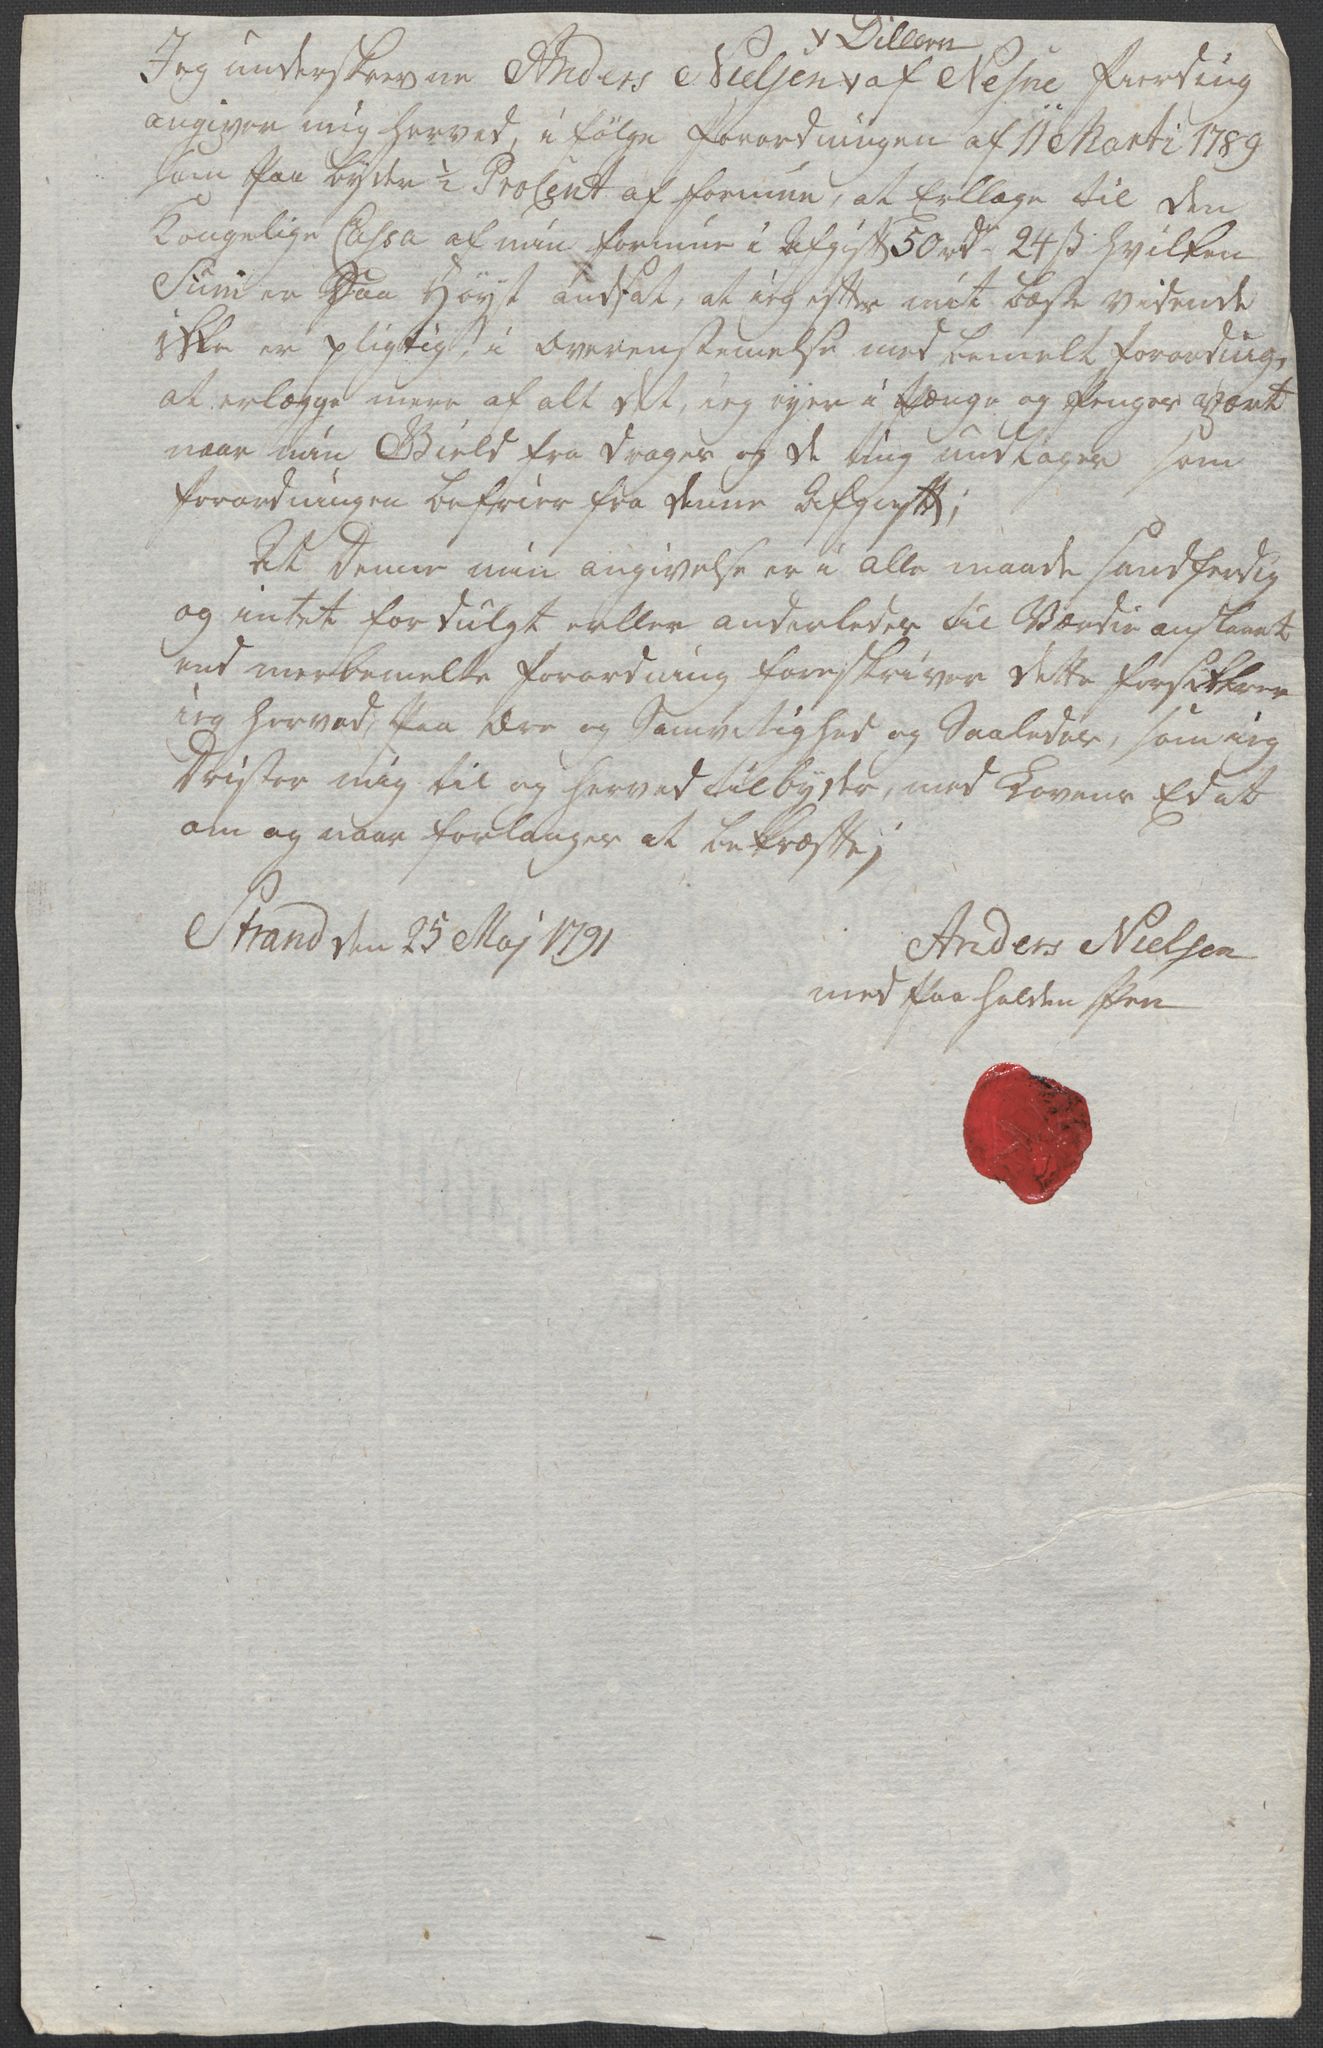 x Dillern
Jeg underskrevne Anders Nielsen x af Nesne Fierding
angiver mig herved, i følge Forordningen af 11 Marti 1789
som Paabyder ½ Procent af formue, at Erllage til den
Kongelige Cassa af min formue i Afgift 50 rdr 24 ß hvilken
Sum er Saa Høyt andsat, at ieg efter mit bæste vidende
ikke er pligtig, i overenstemelse med bemelt forording,
at erlægge mere af alt det, ieg eyer i Penge og Penges Vært
naar min Gield fra drages og de ting undtages som
forordningen befrier fra denne Afgivtt;
At Denne min angivelse er i alle maade sandferdig
og intet fordulgt erller anderledes til Værdie anslaaet
end merbemelte forordning foreskriver dette forsikkrer
ieg herved, Paa Ære og Samvitighed og Saaledes, som ieg
Drister mig til og herved tilbyder, med Lovens Ed at
om og naar forlanges at bekræfte;
Strand den 25 Maj 1791
Anders Nielsen
med Paa holden Pen